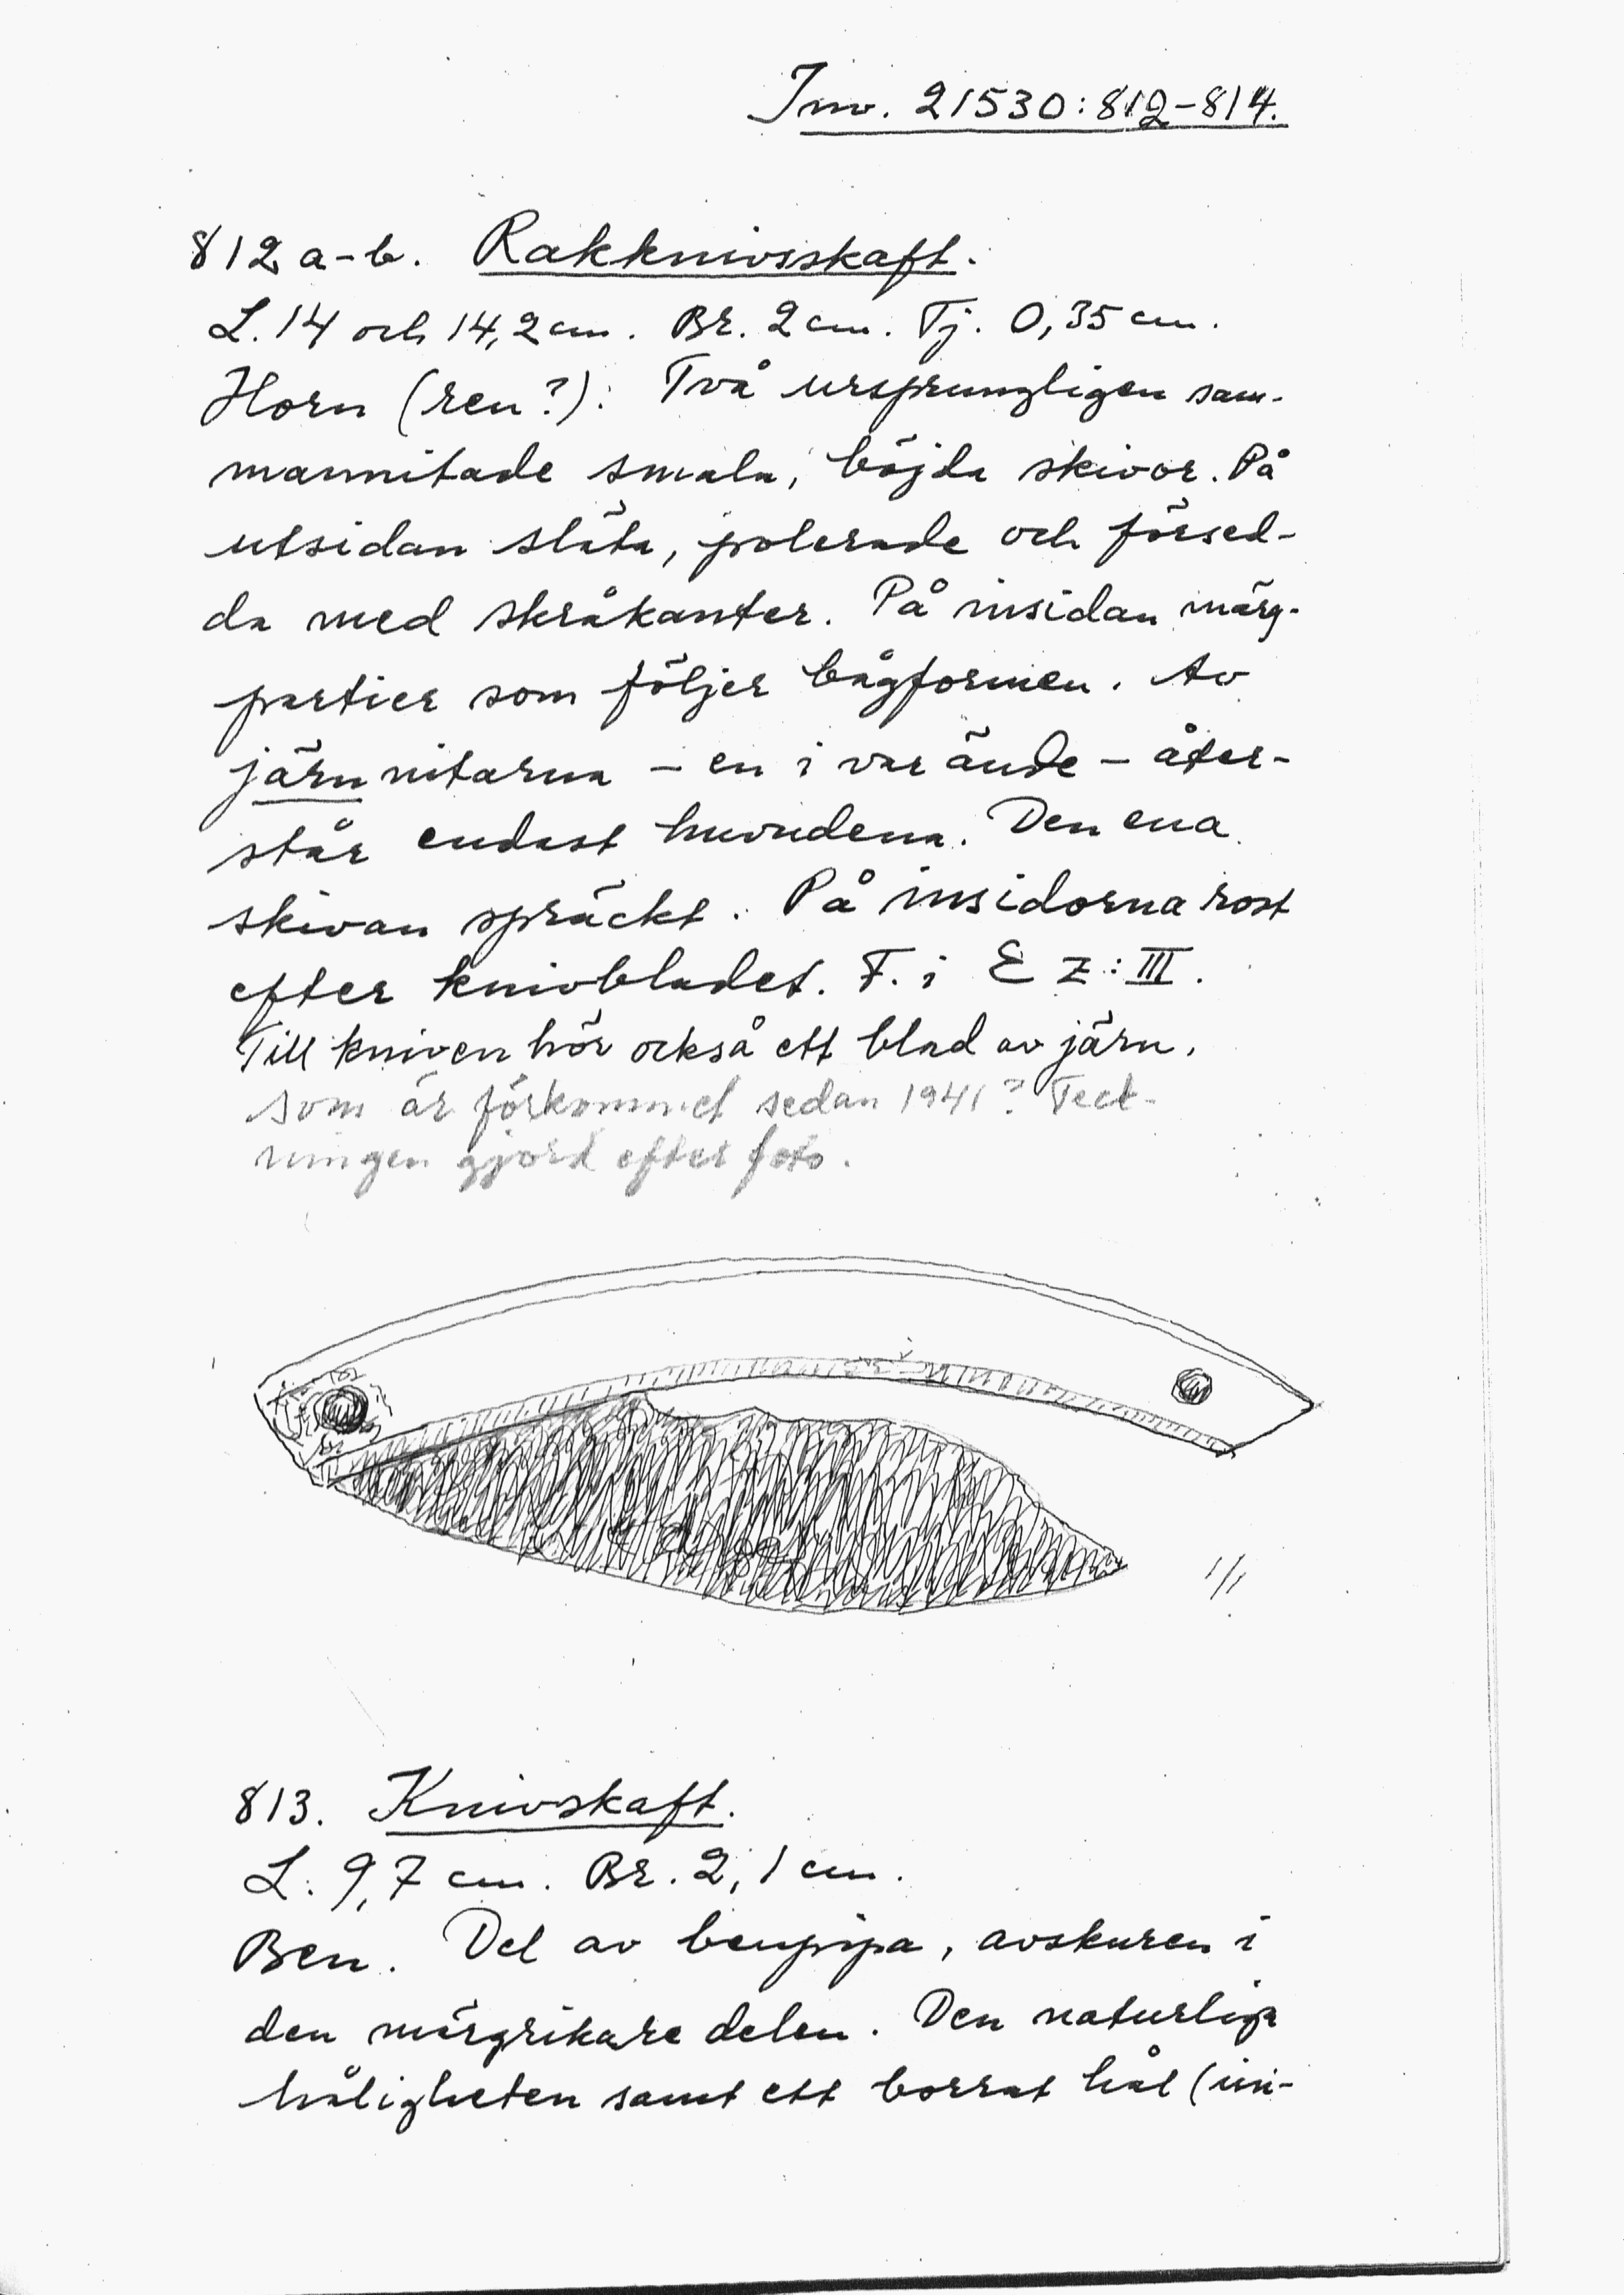 Inv. 21530:812-814.
812 a-b. Rakknivsskaft.
L. 14 och 14,2 cm. Br. 2 cm. Tj. 0,35 cm.
Horn (ren?). Två ursprungligen sam-
mannitade smala, böjda skivor. På
utsidan släta, polerade och försed-
da med skråkanter. På insidan märg-
partier som följer bågformen. Av
järnnitarna – en i var ände – åter-
står endast huvudena. Den ena
skivan spräckt. På insidorna rost
efter knivbladet. F. i E z: III.
Till kniven hör också ett blad av järn,
som är förkommet sedan 1941? Teck-
ningen gjord efter foto.
1/1
813. Knivskaft.
L. 9,7 cm. Br. 2,1 cm.
Ben. Del av benpipa, avskuren i
den märgrikare delen. Den naturliga
håligheten samt ett borrat hål (in-